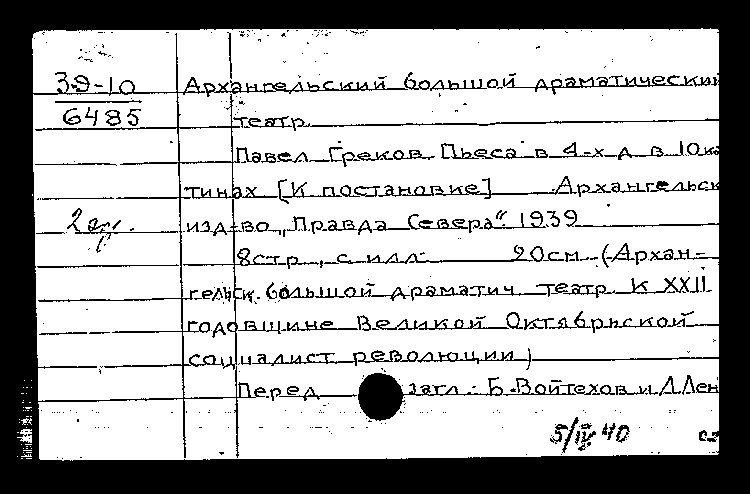 39-10
6485
Архангельский большой драматический
театр
Павел Греков. Пьеса в 4-х д в 10 ка
тинах [К постановке] Архангельск
изд-во „Правда Севера“. 1939
8 стр., с илл. 20 см (Архан-
гельск. большой драматич. театр К XXII
годовщине Великой Октябрьской
социалист революции)
Перед загл.: Б. Войтехов и Л Лен
5/IV 40